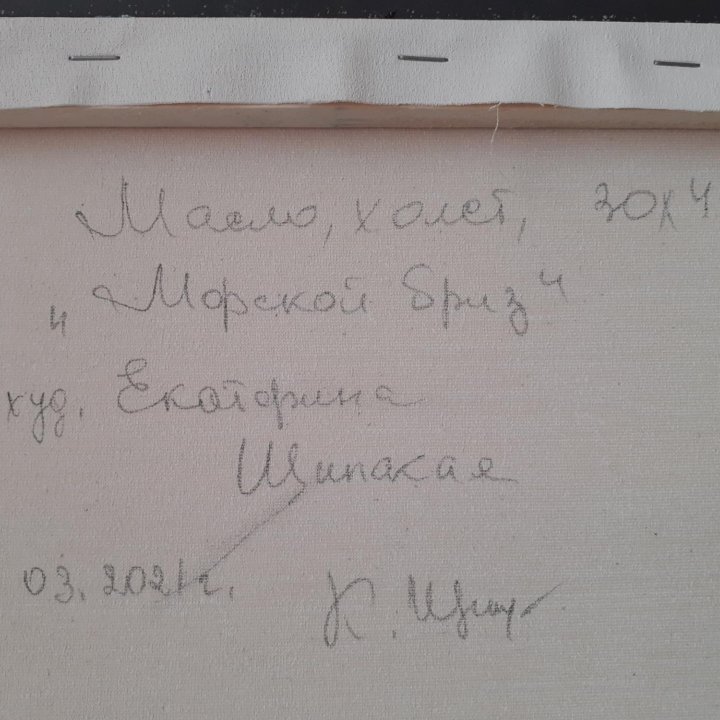 Масло, холст, 30х4
"Морской бриз"
худ. Екатерина
Щипакая
03.2021г.
К. Щип